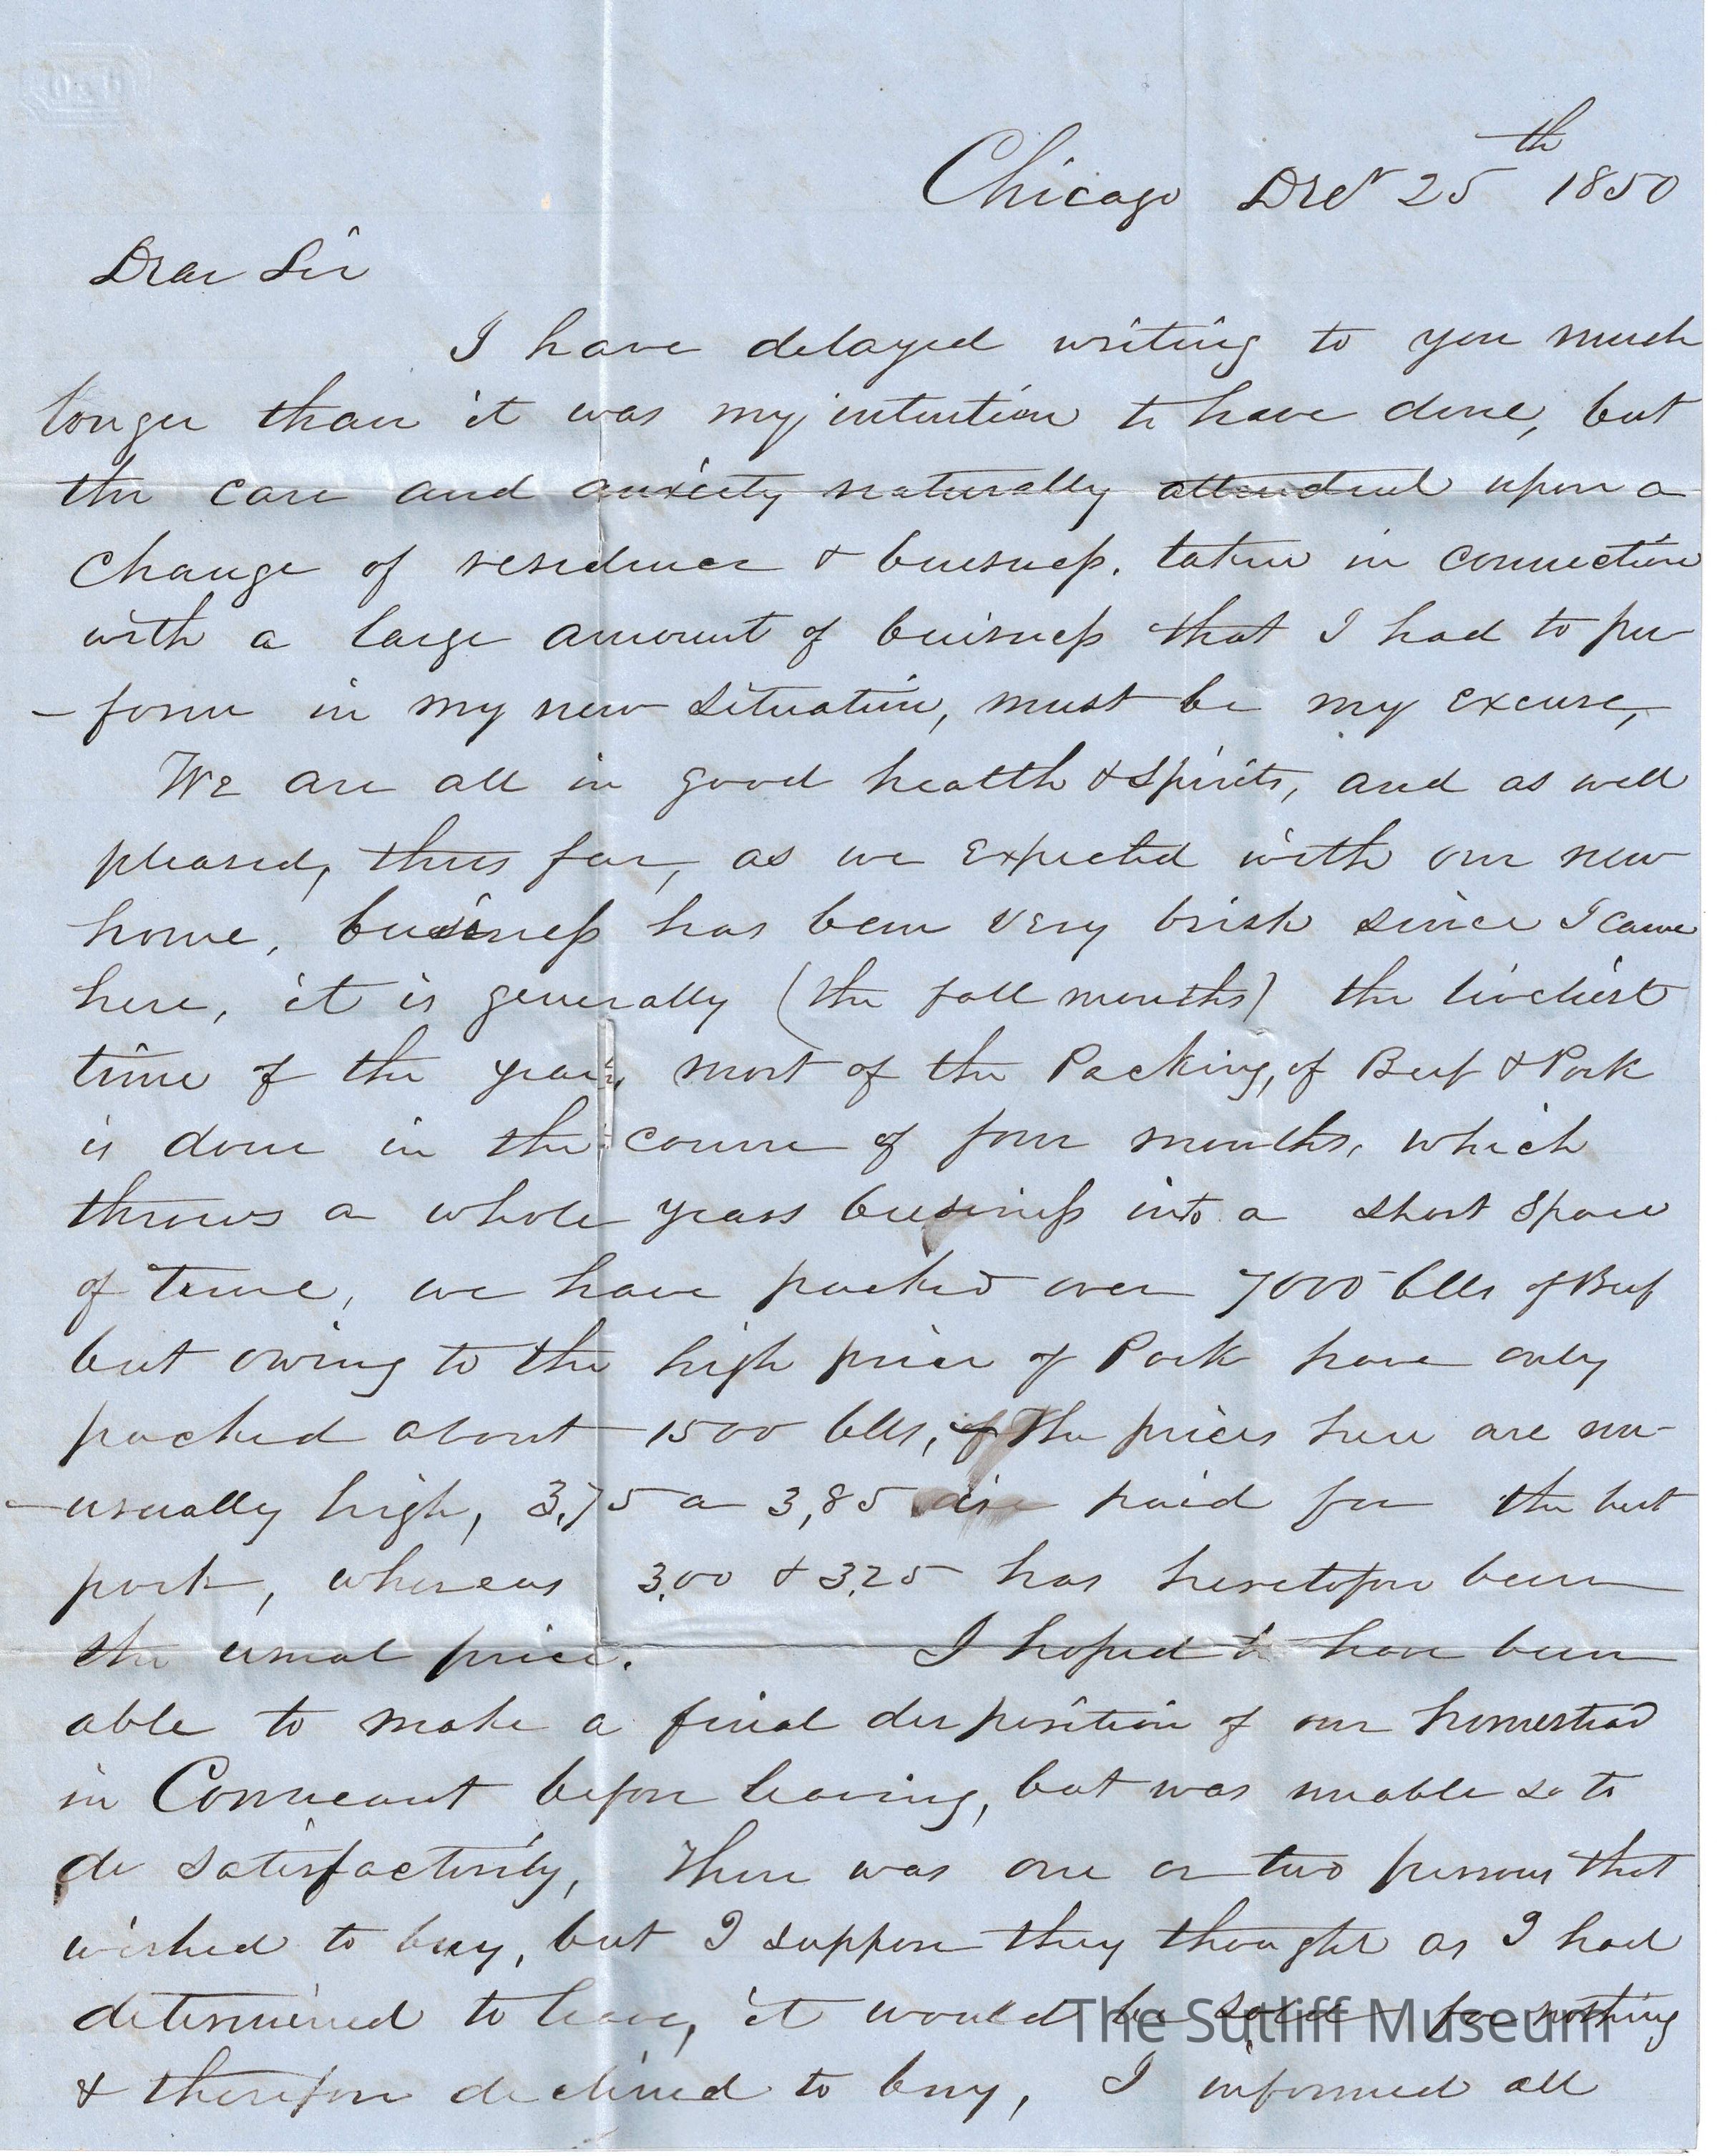 Chicago Decr 25th 1850
Dear Sir
I have delayed writing to you much
longer than it was my intention to have done, but
the care and anxiety naturally attendent upon a
change of residence & buisness. taken in connection
with a large amount of buisness that I had to per
-form in my new situation, must be my excuse,
We are all in good health & spirits, and as well
pleased, thus far, as we expected with our new
home, business has been very brisk since I came
here, it is generally (the fall months) the liveliest
time of the year, most of the Packing, of Beef & Pork
is done in the course of four months, which
throws a whole years business into a short space
of time, we have packed over 7000 blls of Beef
but owing to the high price of Pork have only
packed about 1500 blls, of The prices here are un-
-usually high, 3,75 a 3,85 are paid for the best
pork, whereas 3,00 & 3,25 has heretofore been
the usual price. I hoped to have been
able to make a final disposition of our homestead
in Conneaut before leaving, but was unable so to
do satisfactorily, There was one or two persons that
wished to buy, but I suppose they thought as I had
determined to leave, it would be sold for nothing
& therefore declined to buy, I informed all
The Sutliff Museum